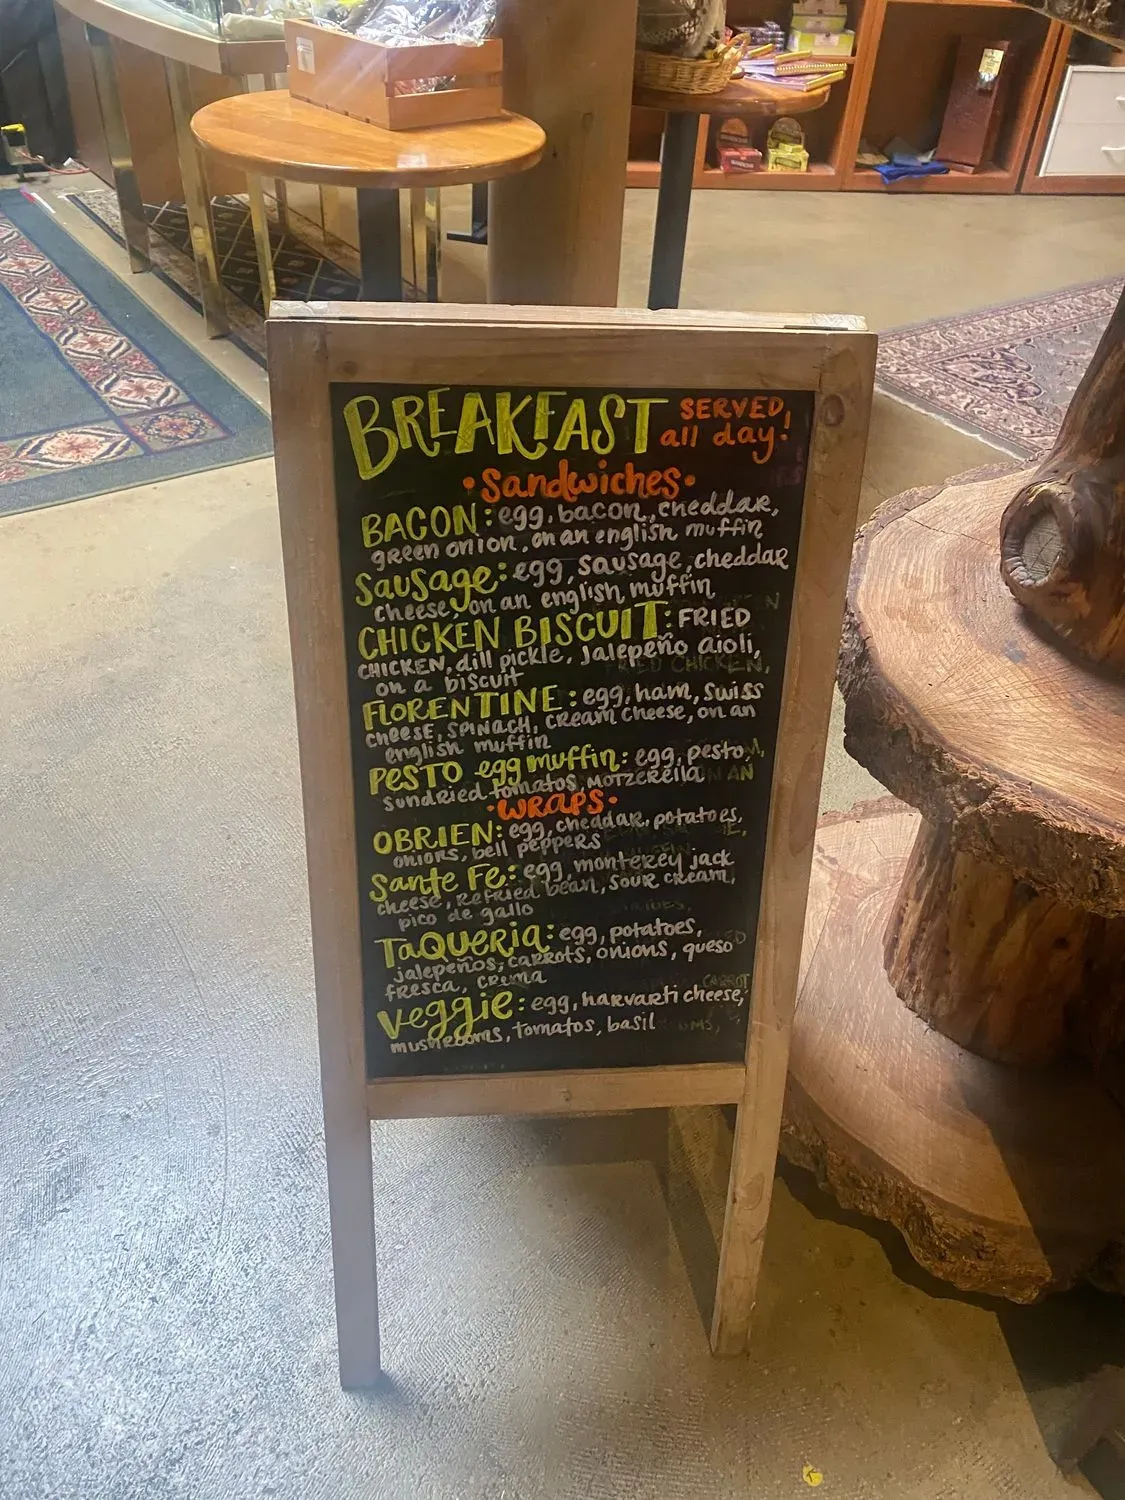 BREAKFAST SERVED
all day!
• Sandwiches •
BACON: egg, bacon, cheddar,
green onion, on an english muffin
Sausage: egg, sausage, cheddar
cheese, on an english muffin
CHICKEN BISCUIT: FRIED
CHICKEN, dill pickle, Jalepeño aioli,
on a biscuit
FLORENTINE: egg, ham, Swiss
cheese, SPINACH, cream cheese, on an
english muffin
PESTO egg muffin: egg, pesto,
sundried tomatos, MOTZERElla
• WRAPS •
OBRIEN: egg, cheddar, potatoes,
onions, bell peppers
Sante Fe: egg, monterey jack
cheese, Refried bean, sour cream,
pico de gallo
TaQueria: egg, potatoes,
jalepeños, carrots, onions, queso
fresca, crema
Veggie: egg, harvarti cheese,
mushrooms, tomatos, basil